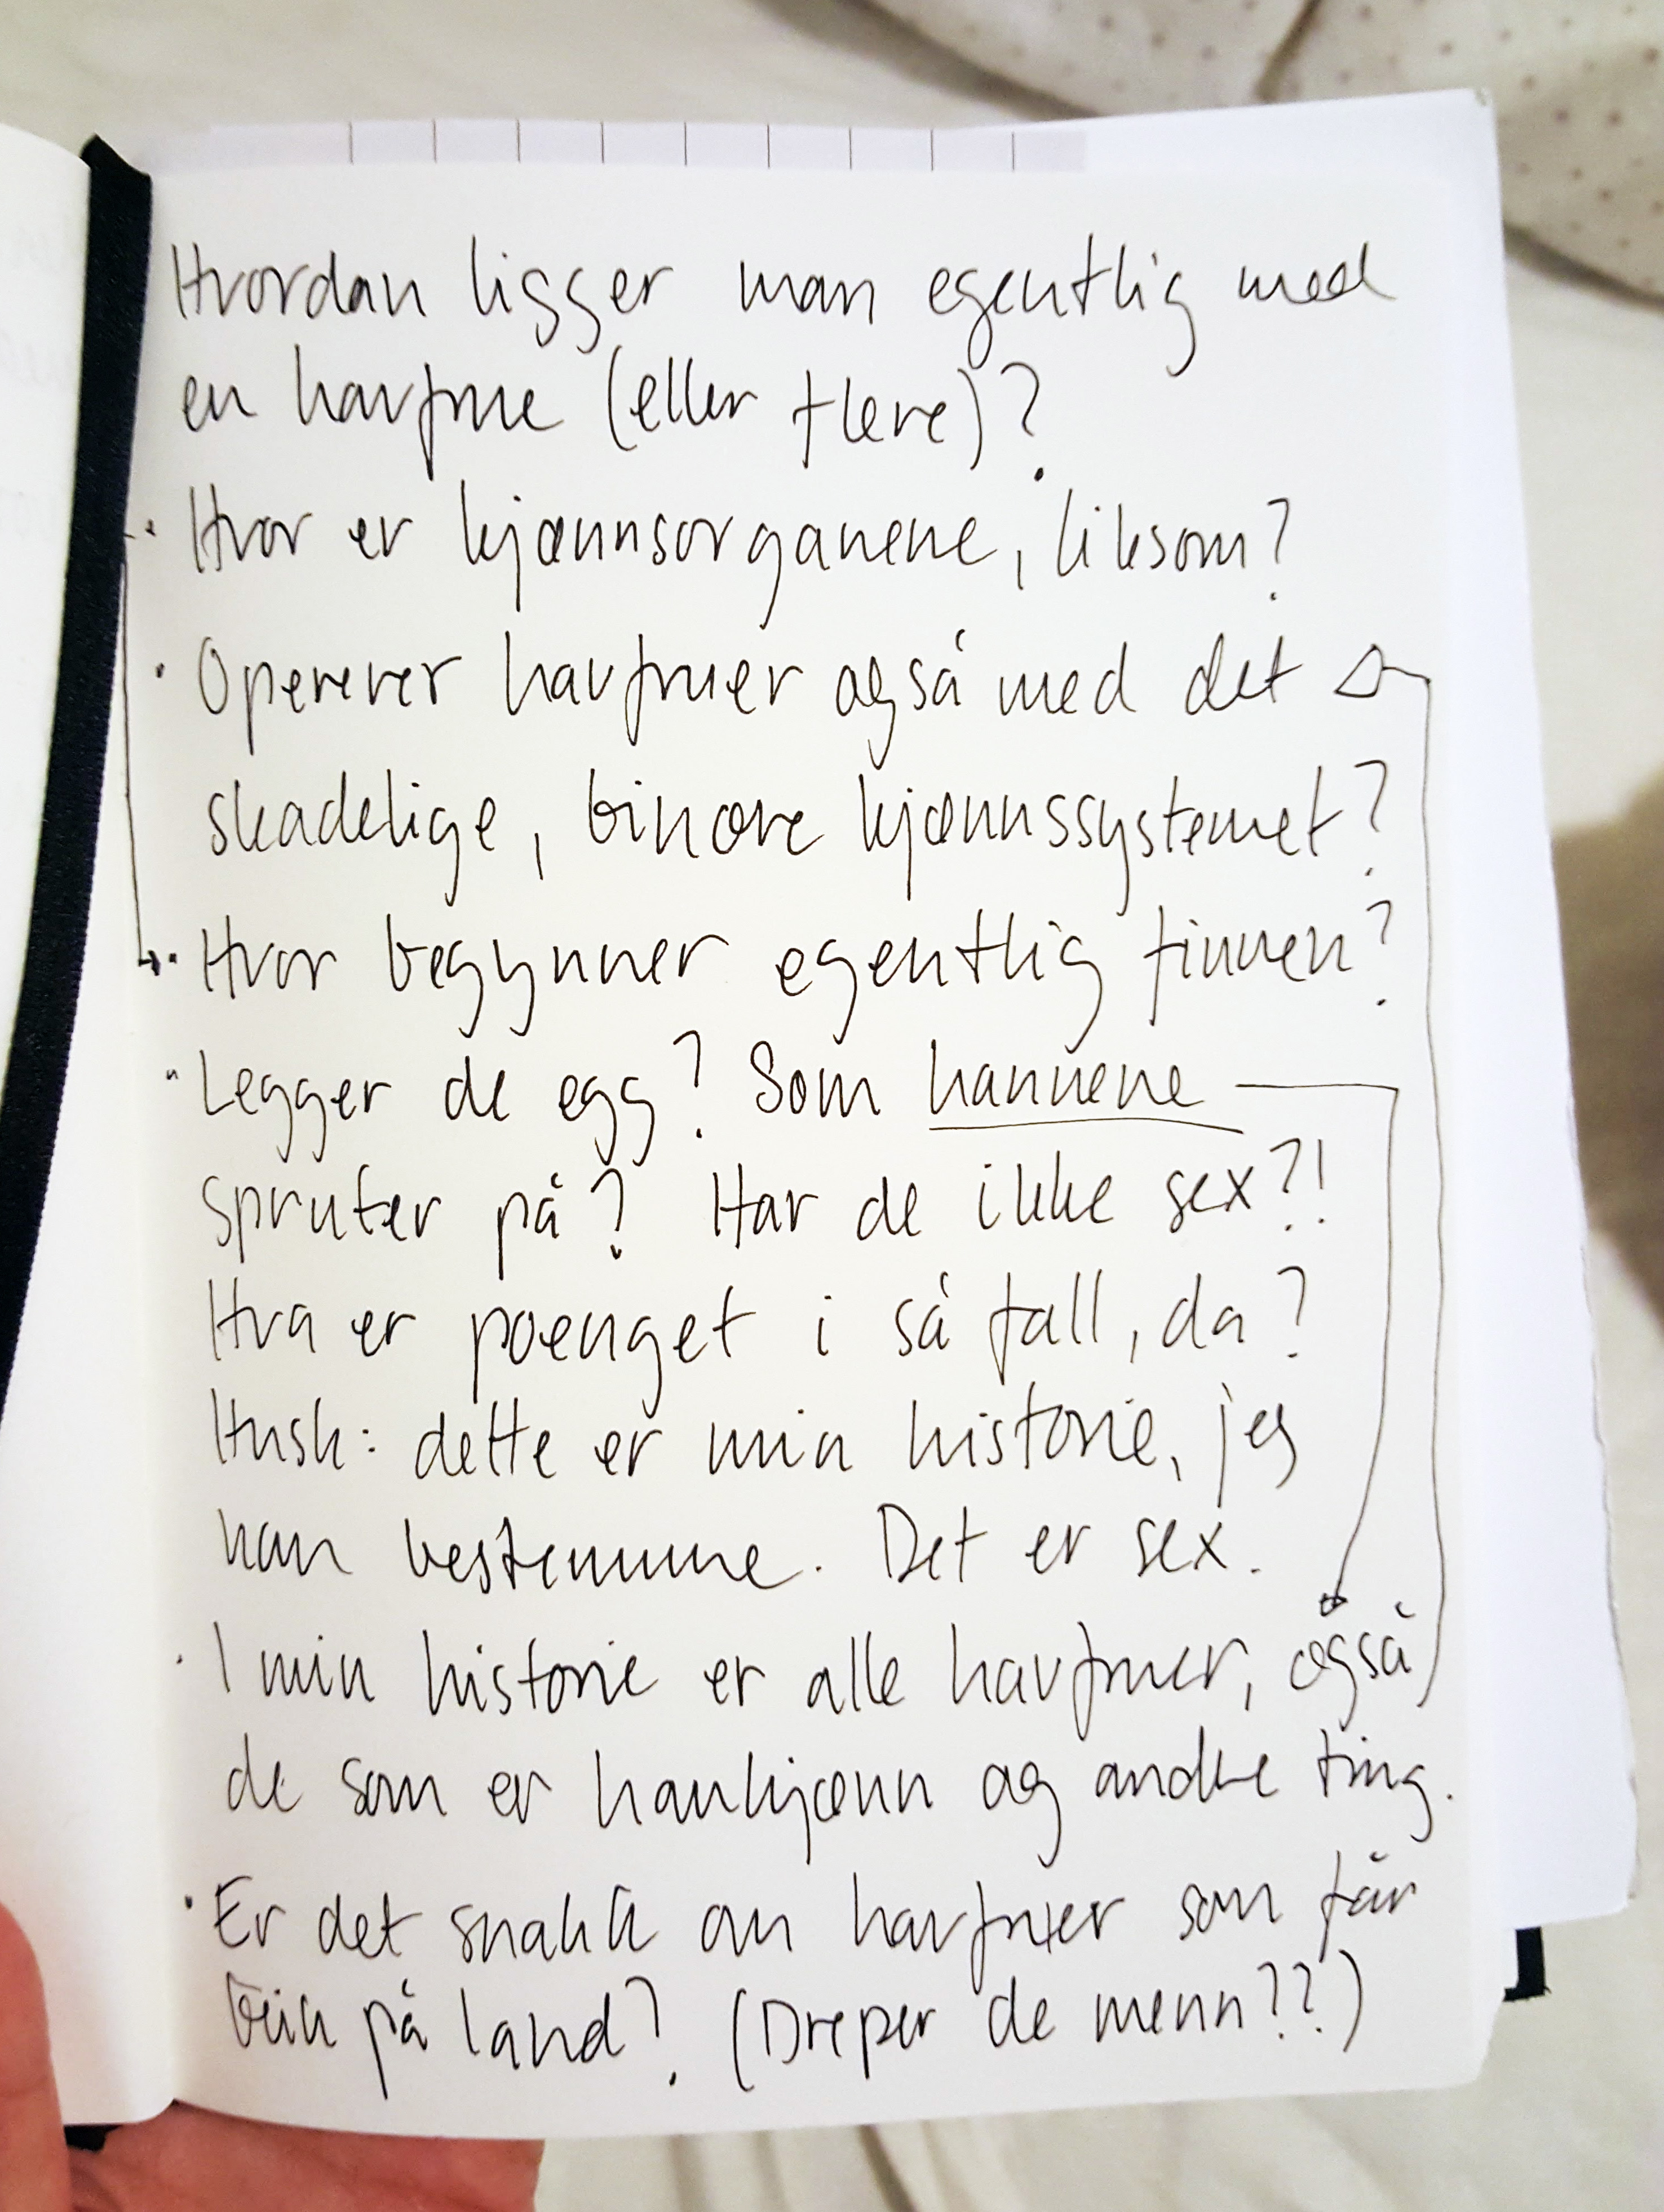 Hvordan ligger man egentlig med
en havfrue (eller flere)?
· Hvor er kjønnsorganene, liksom?
· Opererer havfruer også med det
skadelige, binære kjønnssystemet?
· Hvor begynner egentlig finnen?
· Legger de egg? Som hannene
spruter på? Har de ikke sex?!
Hva er poenget i så fall, da?
Husk: dette er min historie, jeg
kan bestemme. Det er sex.
· I min historie er alle havfruer, også
de som er hankjønn og andre ting.
· Er det snakk om havfruer som får
bein på land? (Dreper de menn??)